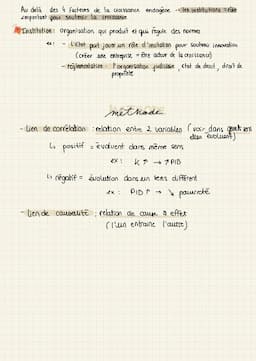 Au delà des 4 facteurs de la croissance endogène - les institutions rôle
important pour soutenir la croissance
Institution : organisation qui produit et qui régule des normes
ex : - L'état peut jouer un rôle d'incitation pour soutenir innovation
(créer une entreprise = être acteur de la croissance)
- réglementation : l'organisation judiciaire, état de droit, droit de
propriété
méthode
- lien de corrélation : relation entre 2 variables (voir dans quel sens
elles évoluent)
↳ positif = évoluent dans même sens
ex : K ↑ → ↑ PIB
↳ négatif = évolution dans un sens différent
ex : PIB ↑ → ↘ pauvreté
- lien de causalité : relation de cause à effet
(l'un entraine l'autre)